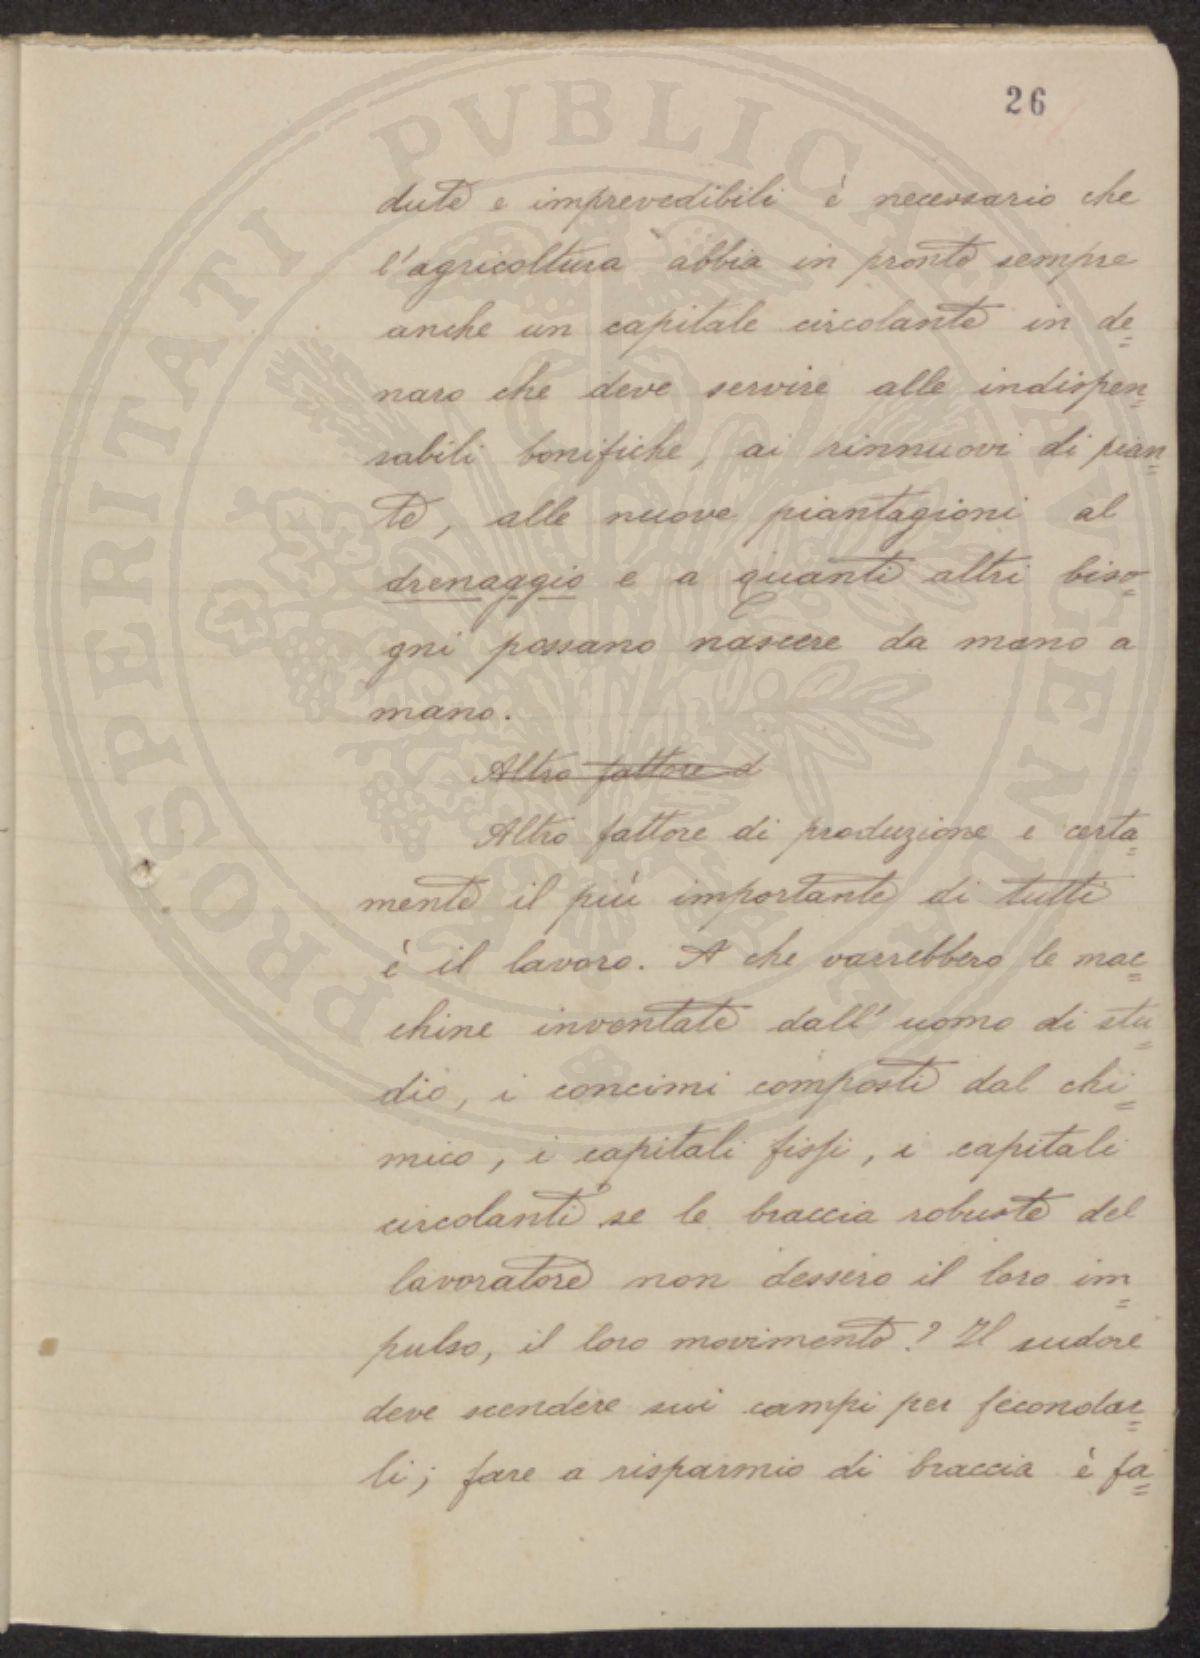 26
PROSPERITATI PVBLICAE AVGENDAE
dute e imprevedibili è necessario che
l'agricoltura abbia in pronto sempre
anche un capitale circolante in de=
naro che deve servire alle indispen=
sabili bonifiche, ai rinnuovi di pian=
te, alle nuove piantagioni al
drenaggio e a quanti altri biso=
gni possano nascere da mano a
mano.
Altro fattore d
Altro fattore di produzione e certa=
mente il più importante di tutti
è il lavoro. A che varrebbero le mac=
chine inventate dall'uomo di stu=
dio, i concimi composti dal chi=
mico, i capitali fissi, i capitali
circolanti se le braccia robuste del
lavoratore non dessero il loro im=
pulso, il loro movimento? Il sudore
deve scendere sui campi per fecondar=
li; fare a risparmio di braccia è fa=